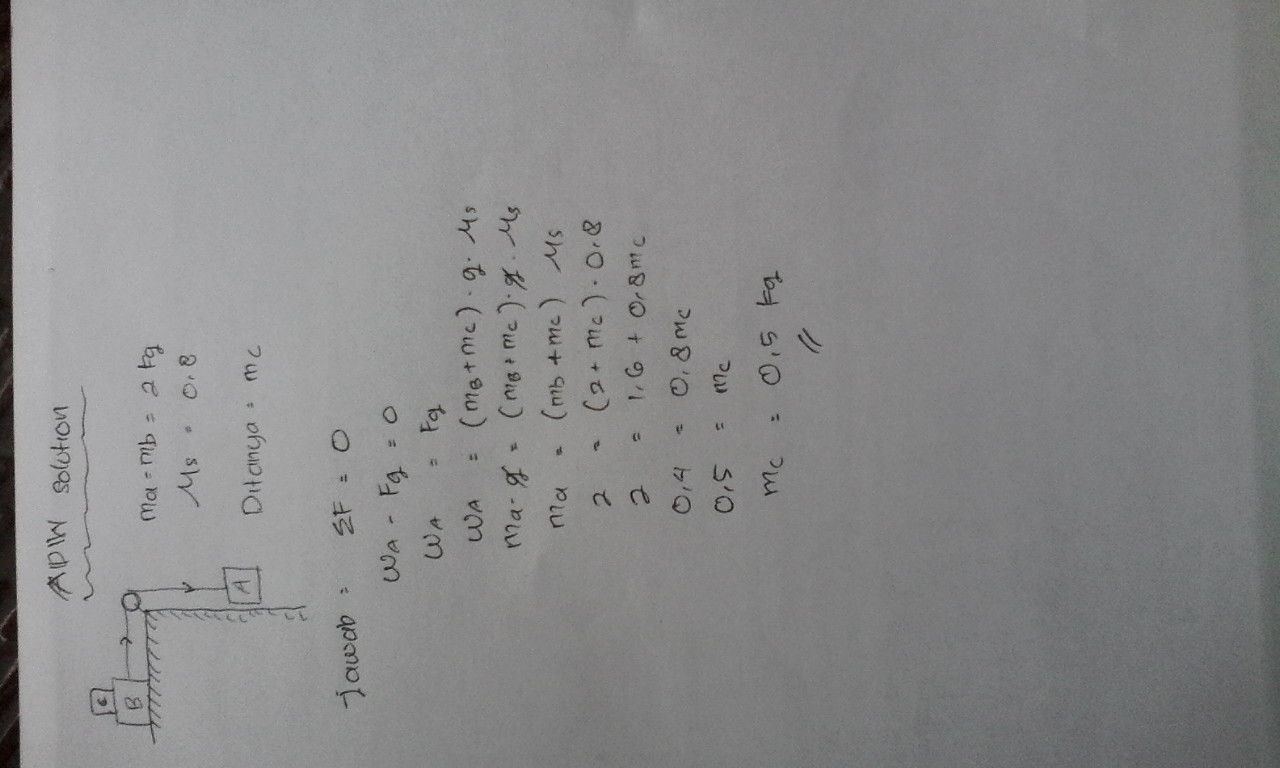 ADIW solution
C
B
A
ma = mb = 2 kg
μs = 0,8
Ditanya = mc
jawab = ΣF = 0
WA - Fg = 0
WA = Fg
WA = (mB + mc) . g . μs
ma . g = (mB + mc) . g . μs
ma = (mb + mc) μs
2 = (2 + mc) . 0,8
2 = 1,6 + 0,8 mc
0,4 = 0,8 mc
0,5 = mc
mc = 0,5 kg